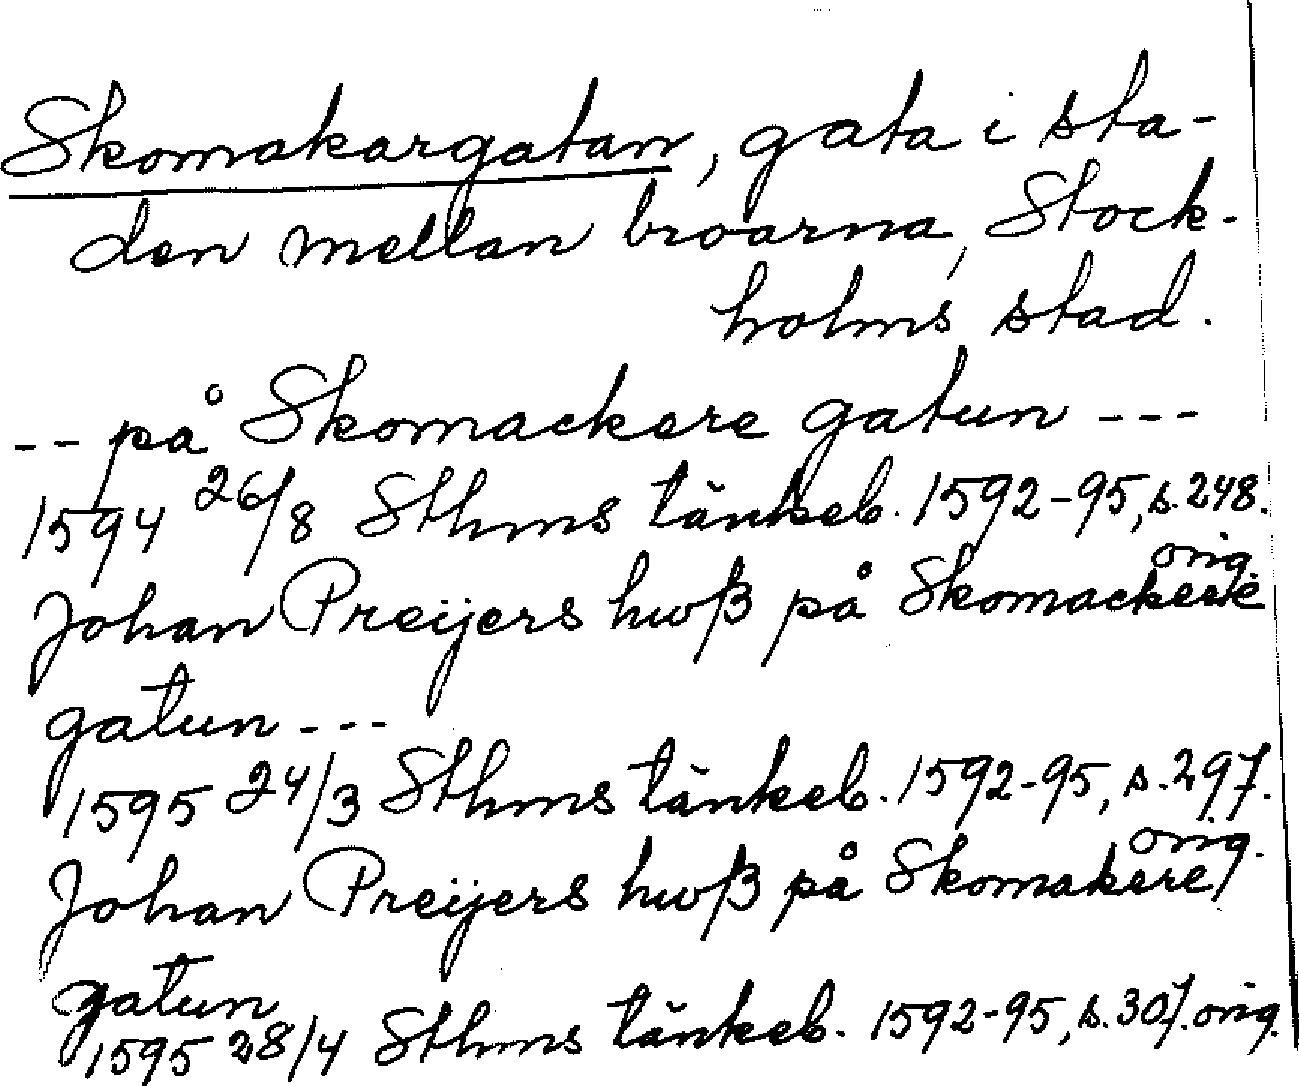 Skomakargatan, gata i sta-
den mellan broarna, Stock-
holms stad.
-- på Skomackere gatun ---
1594 26/8 Sthms tänkeb. 1592-95, s. 248.
orig.
Johan Preijers hwß på Skomackere
gatun ---
1595 24/3 Sthms tänkeb. 1592-95, s. 297.
orig.
Johan Preijers hwß på Skomakere
gatun
1595 28/4 Sthms tänkeb. 1592-95, s. 307. orig.